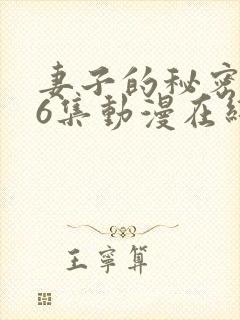 妻子的秘密
6集動漫在
王寧算